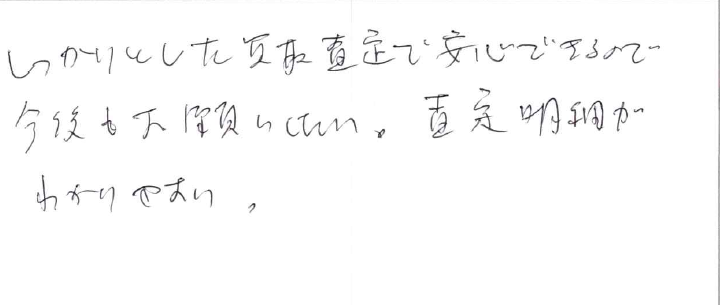 しっかりとした買取査定で安心できるので
今後もお願いしたい。査定明細が
わかりやすい。